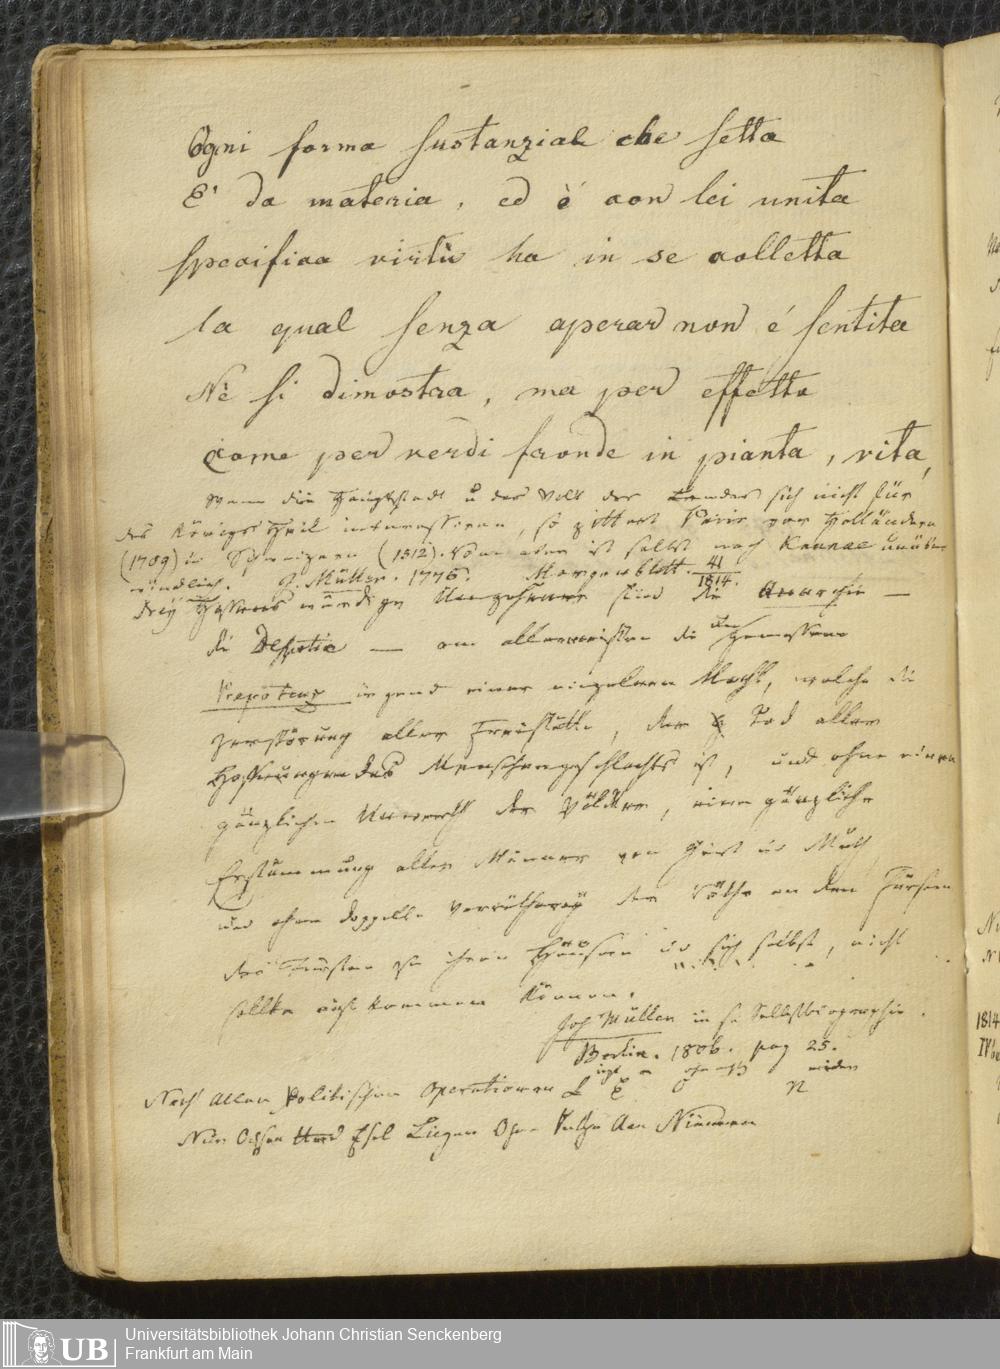 Ogni forma sustanzial che setta
E' da materia, ed è con lei unita
specifica virtù ha in se colletta
la qual senza operar non é sentita
Nè si dimostra, ma per effetto
come per verdi fronde in pianta, vita,
Wenn die Hauptstadt u das Volk des Landes sich nicht für
des Königs Heil interessiren, so zittert Paris vor Holländern
(1709) u Schweizern (1512). Rom aber ist selbst nach Kannae unüber
windlich. J. Müller. 1776. Morgenblatt. 41
1814.
Drey Hassens würdige Ungeheuer sind die Anarchie —
die Despotie — am allermeisten die ungemessene
Prepotenz irgend einer einzelnen Macht, welche die
Zerstörung aller Freistätte, der Tod aller
Hoffnungen des Menschengeschlechts ist, und ohne einen
gänzlichen Unwerth der Völker, eine gänzliche
Erstummung aller Männer von Geist u Muth
und ohne doppelte Verrätherey der Räthe an den Fürsten
der Fürsten an ihren Häusern u sich selbst, nicht
sollte aufkommen können.
Joh Müller in sr Selbstbiographie.
Berlin. 1806. pag 25.
Nach Allen Politischen Operationen L E
Nur Ochsen Und Esel Liegen Ohne